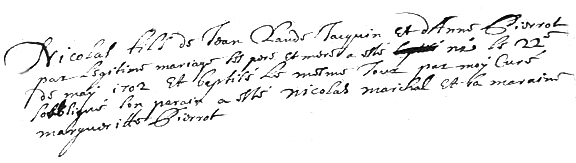 Nicolas fils de Jean Claude Jacquin et d'Anne Pierrot
par legitime mariage les pere et mere a esté né le 22e
de may 1702 et baptisé le meme jour par moy Curé
soubsigné son parain a esté nicolas marchal et la maraine
margueritte Pierrot